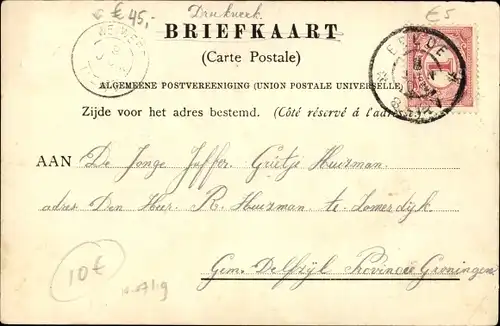 € 45,-
Drukwerk.
€5
BRIEFKAART
(Carte Postale)
ALGEMEENE POSTVEREENIGING (UNION POSTALE UNIVERSELLE)
Zijde voor het adres bestemd. (Côté réservé à l'adre
1
AAN De Jonge Juffer Grietje Huizman.
adres Den Heer R. Huizman te Lomerdijk
Gem. Delfzijl Provincie Groningen
10€